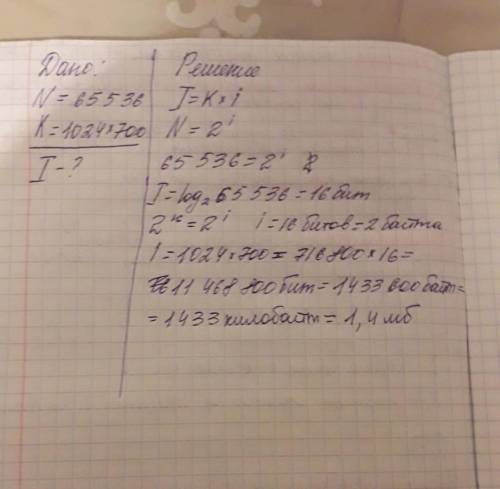 Дано:
N = 65536
K = 1024×700
I - ?
Решение
J = K × i
N = 2^i
65 536 = 2^i
I = log₂ 65 536 = 16 бит
2^к = 2^i i = 16 битов = 2 байта
I = 1024 × 700 = 716800 × 16 =
11 468 800 бит = 1433 600 байт =
= 1433 килобайт = 1,4 мб